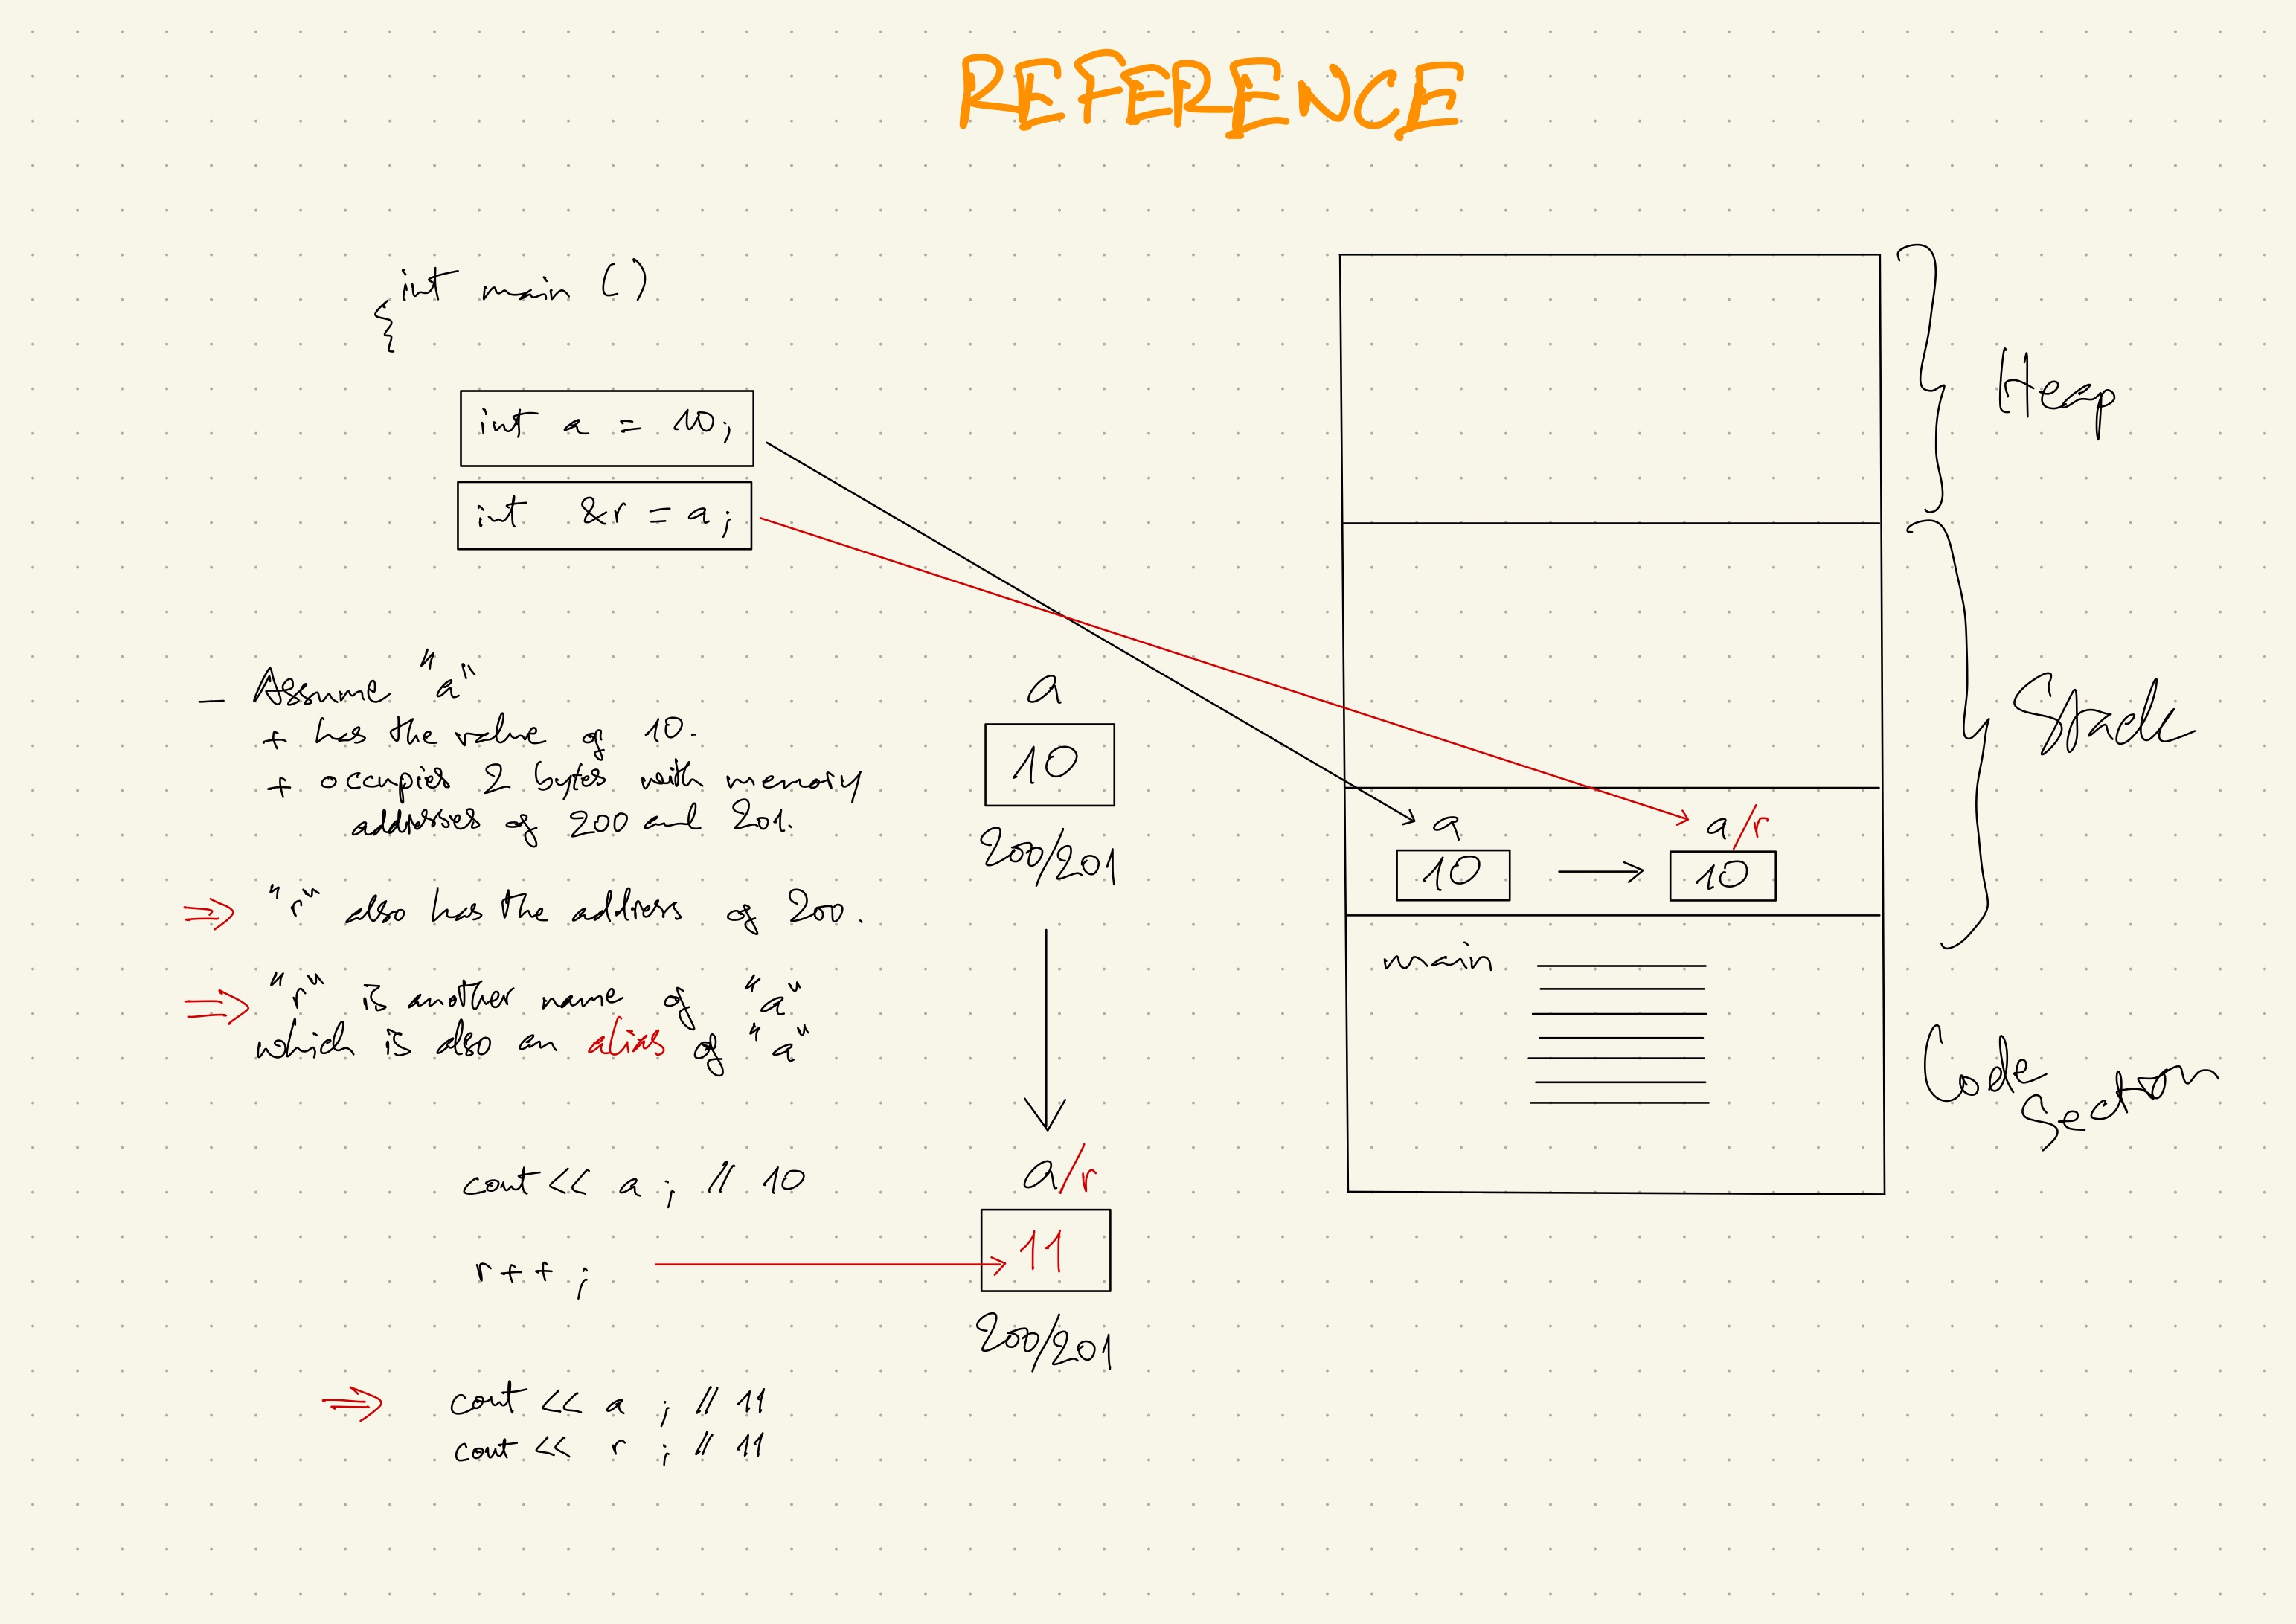 REFERENCE
int main ()
{
int a = 10;
int &r = a;
- Assume "a"
+ has the value of 10.
+ occupies 2 bytes with memory
addresses of 200 and 201.
=> "r" also has the address of 200.
=> "r" is another name of "a"
which is also an alias of "a"
cout << a ; // 10
r++ ;
=> cout << a ; // 11
cout << r ; // 11
a
10
200/201
a/r
11
200/201
a
10
a/r
10
main
Heap
Stack
Code
Section